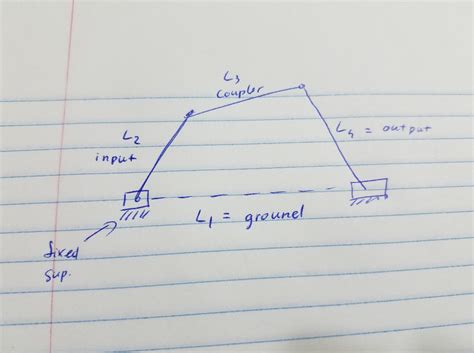 L3
coupler
L2
input
L4 = output
L1 = ground
fixed
sup.